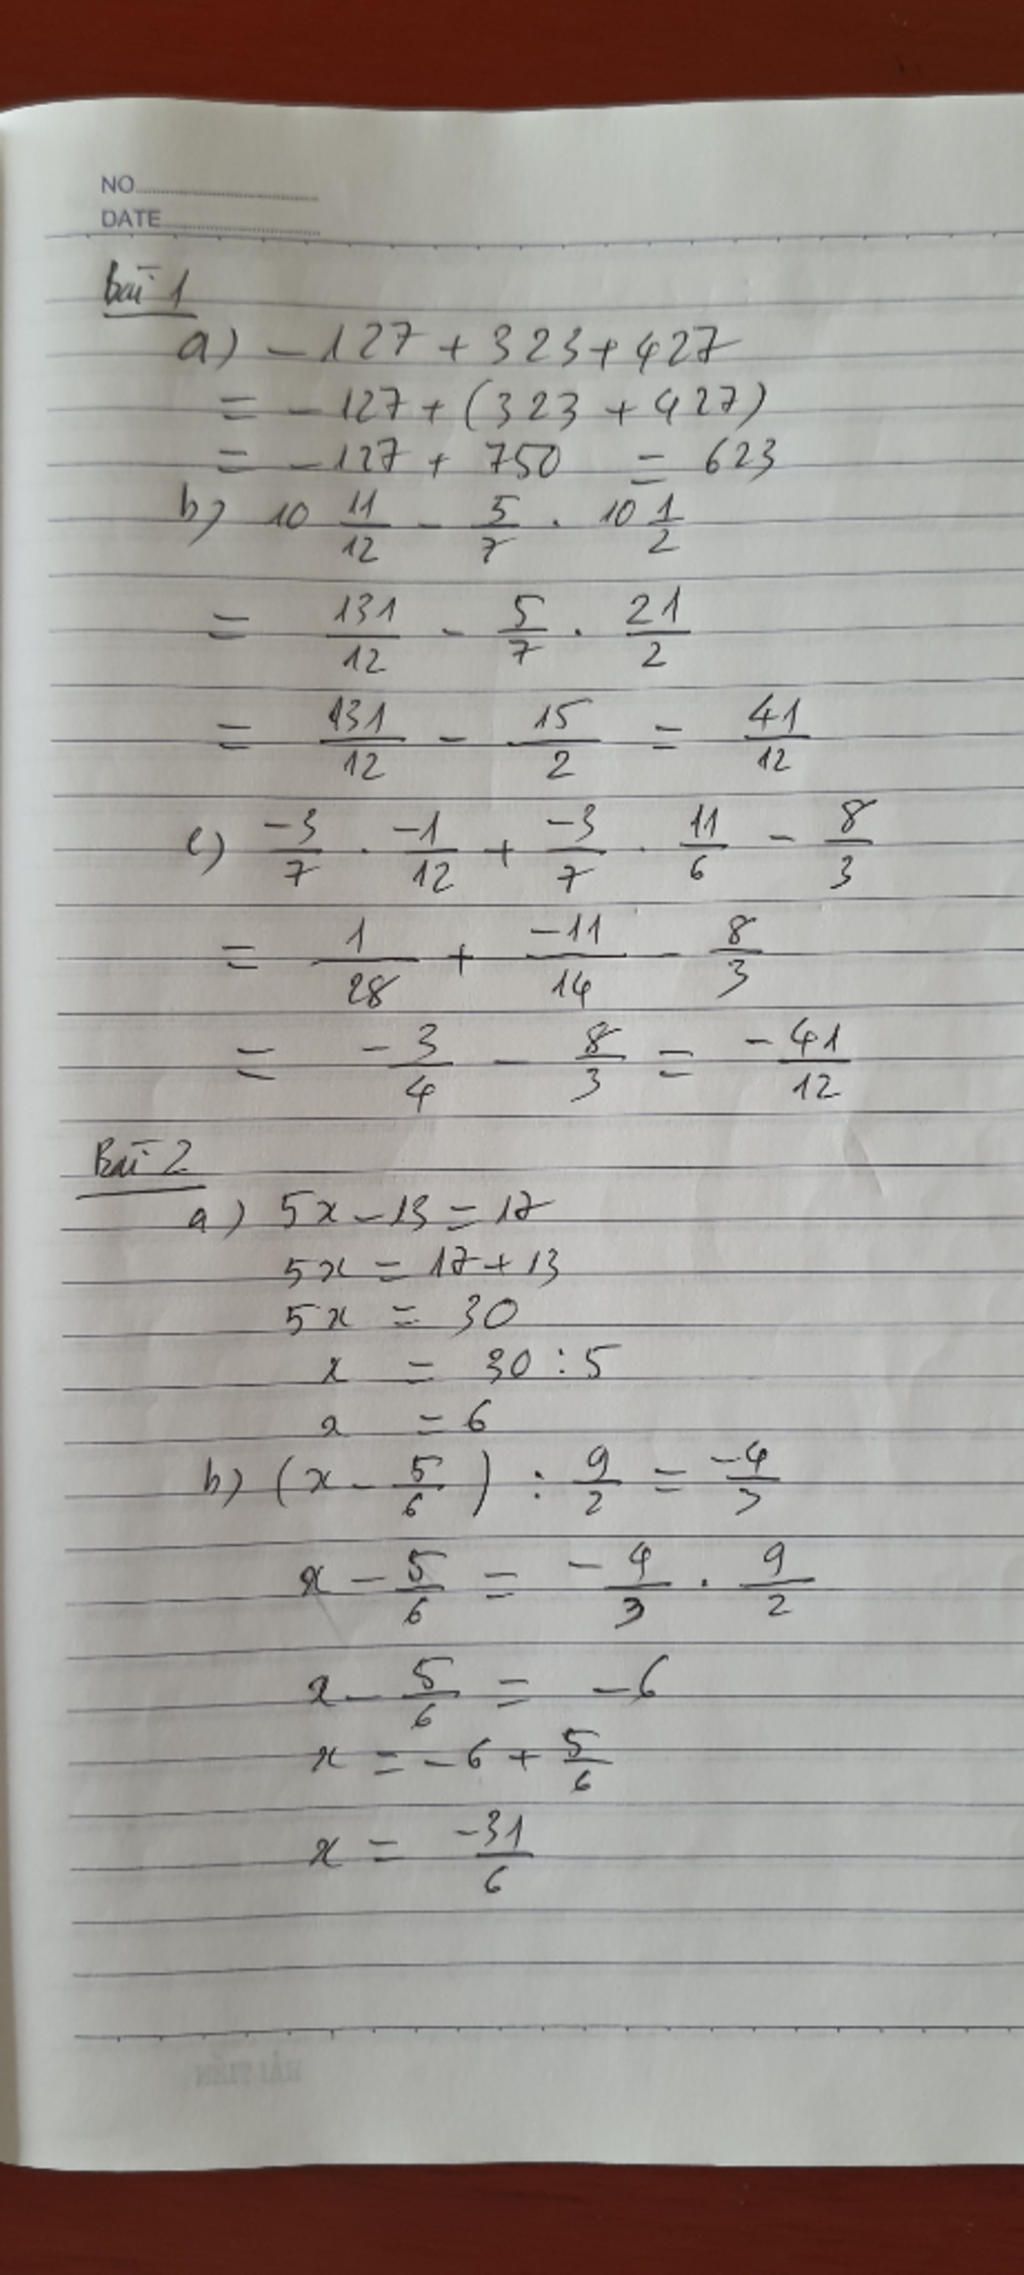 NO
DATE
Bài 1
a) -127 + 323 + 427
= -127 + (323 + 427)
= -127 + 750 = 623
b) 10 11/12 - 5/7 . 10 1/2
= 131/12 - 5/7 . 21/2
= 131/12 - 15/2 = 41/12
c) -3/7 . -1/12 + -3/7 . 11/6 - 8/3
= 1/28 + -11/14 - 8/3
= -3/4 - 8/3 = -41/12
Bài 2
a) 5x - 13 = 17
5x = 17 + 13
5x = 30
x = 30 : 5
x = 6
b) (x - 5/6) : 9/2 = -4/3
x - 5/6 = -4/3 . 9/2
x - 5/6 = -6
x = -6 + 5/6
x = -31/6